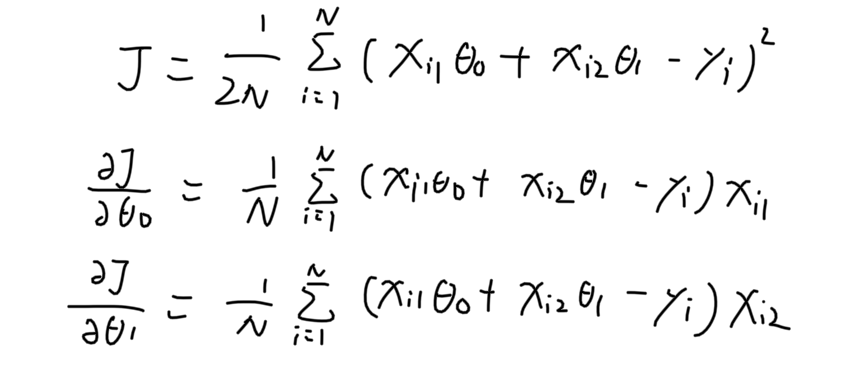 J = \frac{1}{2N} \sum_{i=1}^{N} (x_{i1} \theta_0 + x_{i2} \theta_1 - y_i)^2
\frac{\partial J}{\partial \theta_0} = \frac{1}{N} \sum_{i=1}^{N} (x_{i1} \theta_0 + x_{i2} \theta_1 - y_i) x_{i1}
\frac{\partial J}{\partial \theta_1} = \frac{1}{N} \sum_{i=1}^{N} (x_{i1} \theta_0 + x_{i2} \theta_1 - y_i) x_{i2}